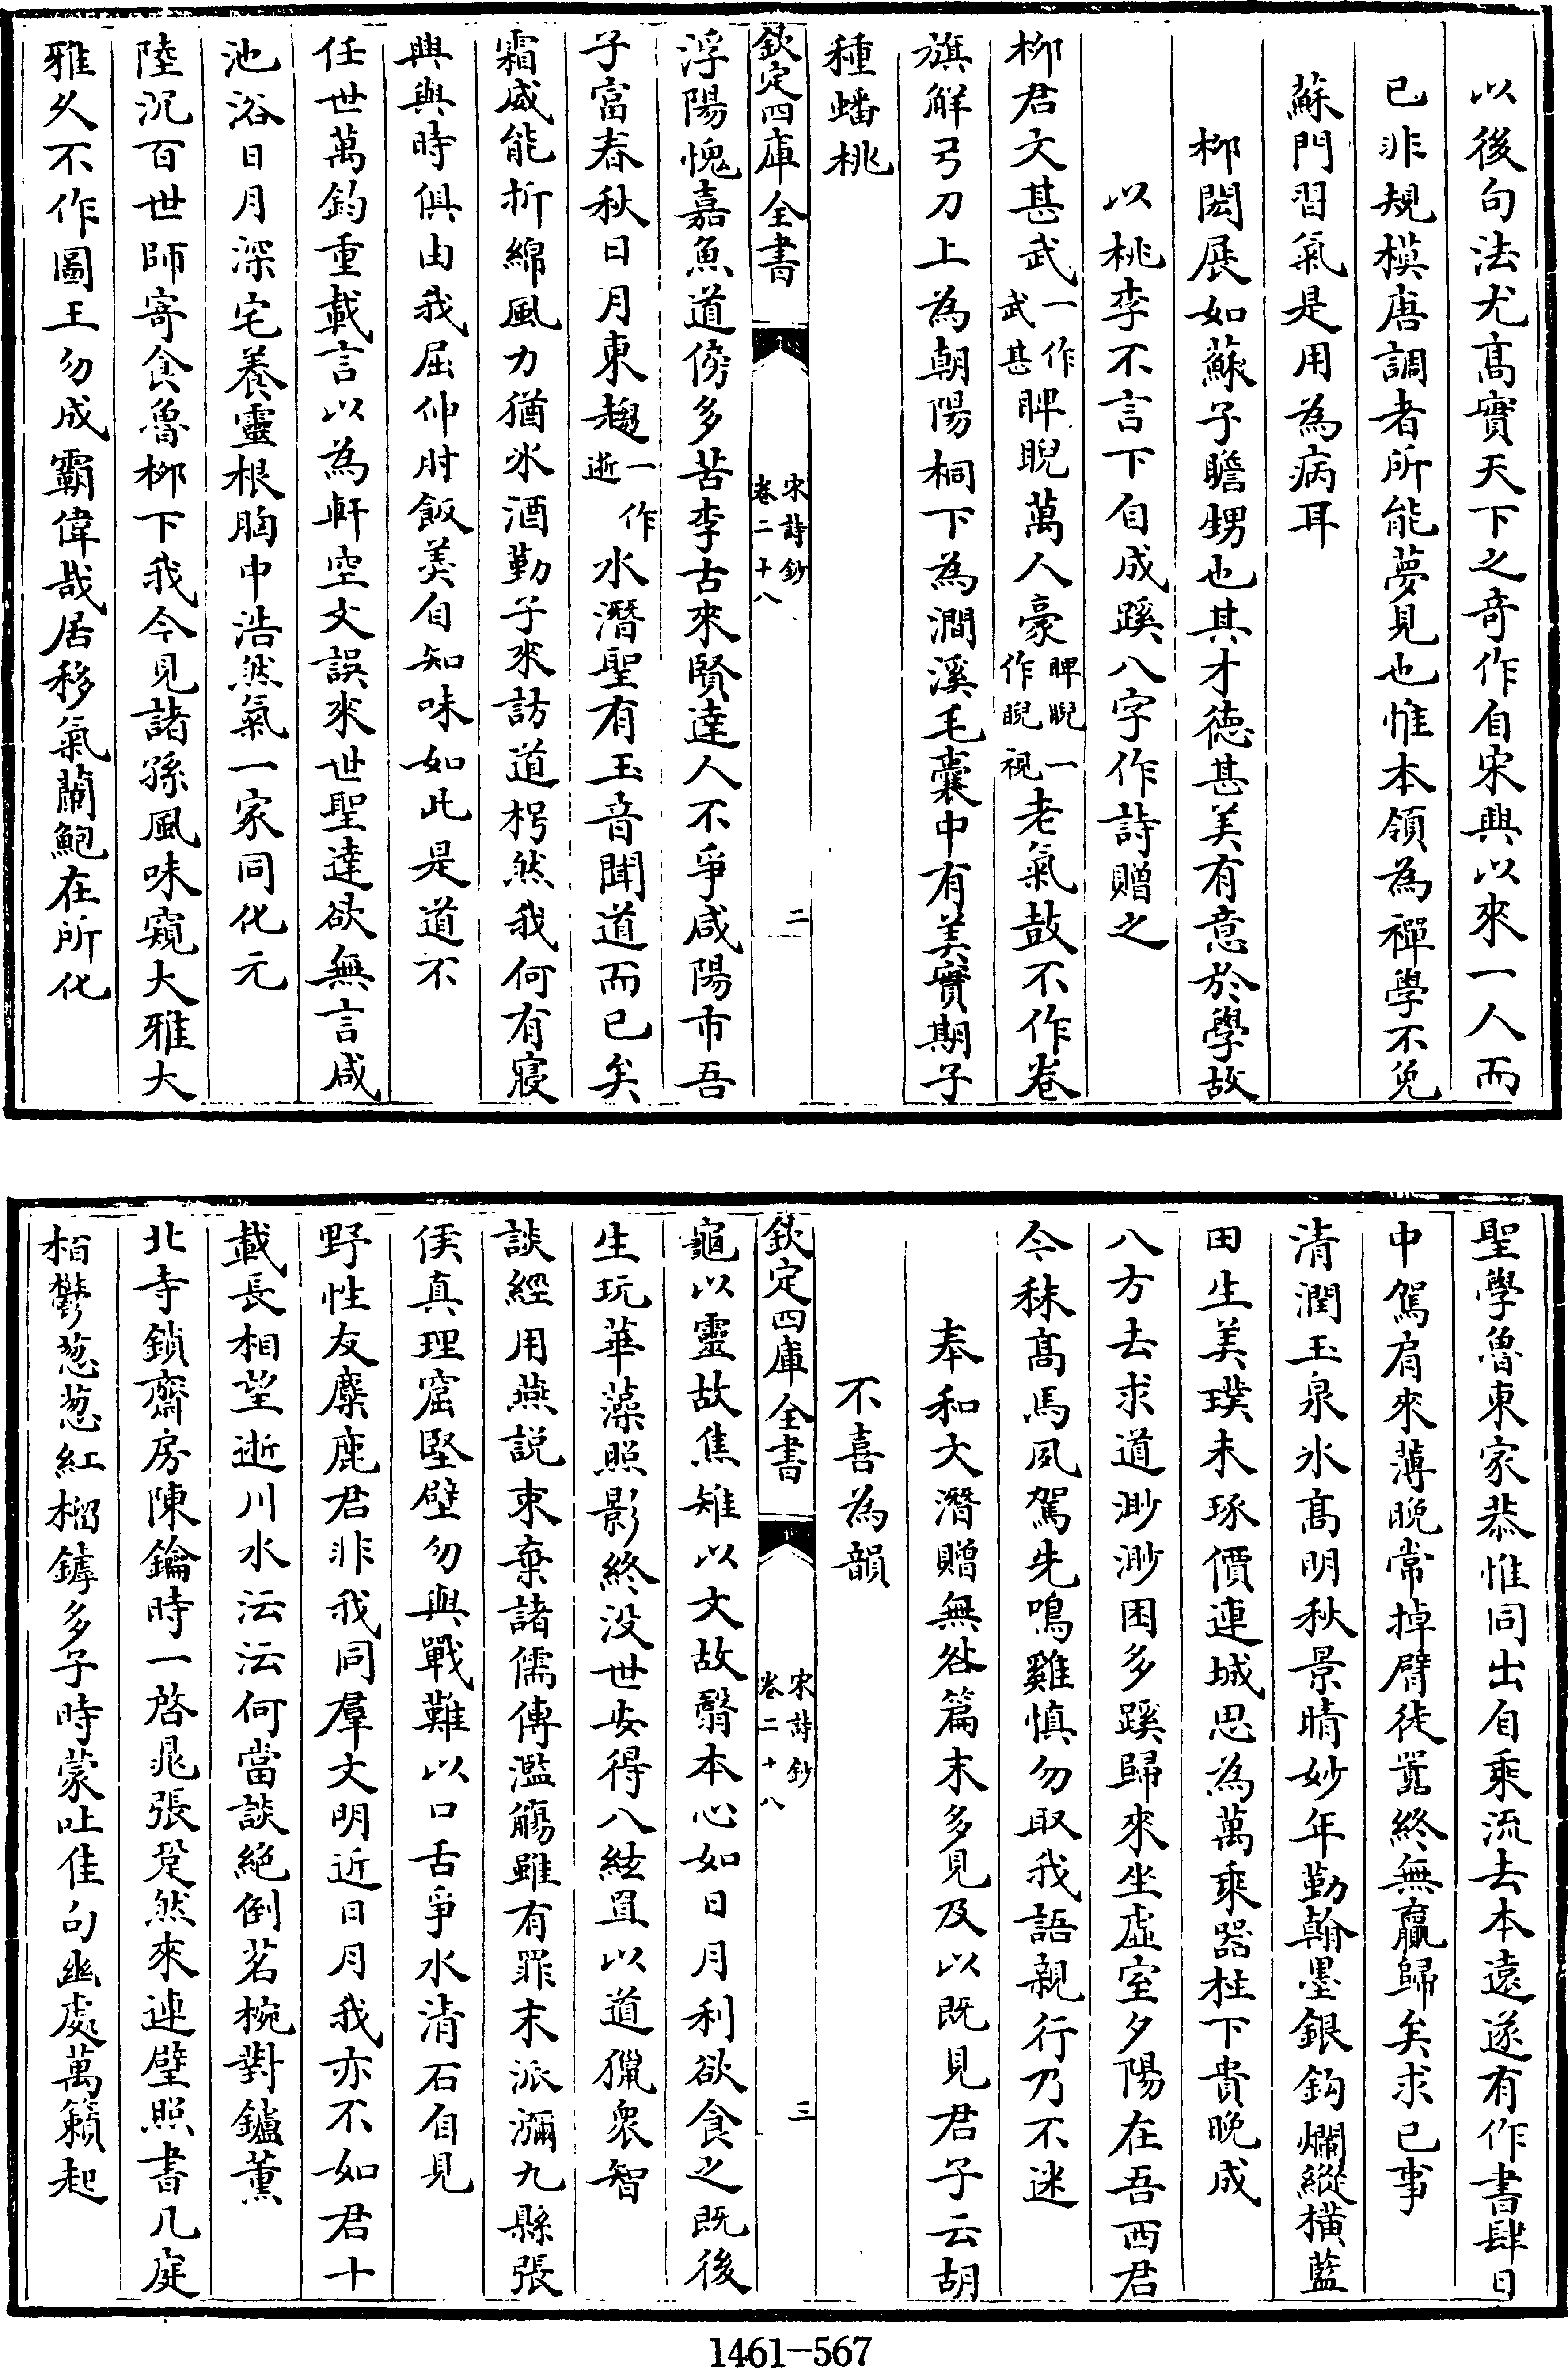 以後句法尤高實天下之竒作自宋興以來一人而
已非規模唐調者所能夢見也惟本領為禪學不免
蘇門習氣是用為病耳
柳閎展如蘇子瞻甥也其才德甚美有意於學故
以桃李不言下自成蹊八字作詩贈之
柳君文甚武一作武甚睥睨萬人豪睥睨一作睨視老氣鼓不作卷
旗解弓刀上為朝陽桐下為澗溪毛囊中有美實期子
種蟠桃
欽定四庫全書
宋詩鈔
卷二十八
二
浮陽愧嘉魚道傍多苦李古來賢達人不爭咸陽市吾
子富春秋日月東趨一作逝水潛聖有玉音聞道而已矣
霜威能折綿風力猶氷酒勤子來訪道枵然我何有寢
興與時俱由我屈伸肘飯羮自知味如此是道不
任世萬鈞重載言以為軒空文誤來世聖達欲無言咸
池浴日月深宅養靈根胸中浩然氣一家同化元
陸沉百世師寄食魯柳下我今見諸孫風味窺大雅大
雅久不作圖王勿成霸偉哉居移氣蘭鮑在所化
聖學魯東家恭惟同出自乘流去本遠遂有作書肆日
中駕肩來薄晚常掉臂徒囂終無贏歸矣求已事
清潤玉泉氷高明秋景晴妙年勤翰墨銀鈎爛縱橫藍
田生美璞未琢價連城思為萬乘器柱下貴晚成
八方去求道渺渺困多蹊歸來坐虛室夕陽在吾西君
今秣高馬夙駕先鳴雞慎勿取我語親行乃不迷
奉和文潛贈無咎篇末多見及以既見君子云胡
不喜為韻
欽定四庫全書
宋詩鈔
卷二十八
三
龜以靈故焦雉以文故翳本心如日月利欲食之既後
生玩華藻照影終没世安得八紘罝以道獵衆智
談經用燕説束棄諸儒傳濫觴雖有罪末派瀰九縣張
侯真理窟堅壁勿與戰難以口舌爭水清石自見
野性友麋鹿君非我同羣文明近日月我亦不如君十
載長相望逝川水沄沄何當談絶倒茗椀對鑪薰
北寺鎖齋房陳鑰時一啓晁張跫然來連璧照書几庭
栢鬱葱葱紅榴鏬多子時蒙吐佳句幽處萬籟起
1461—567